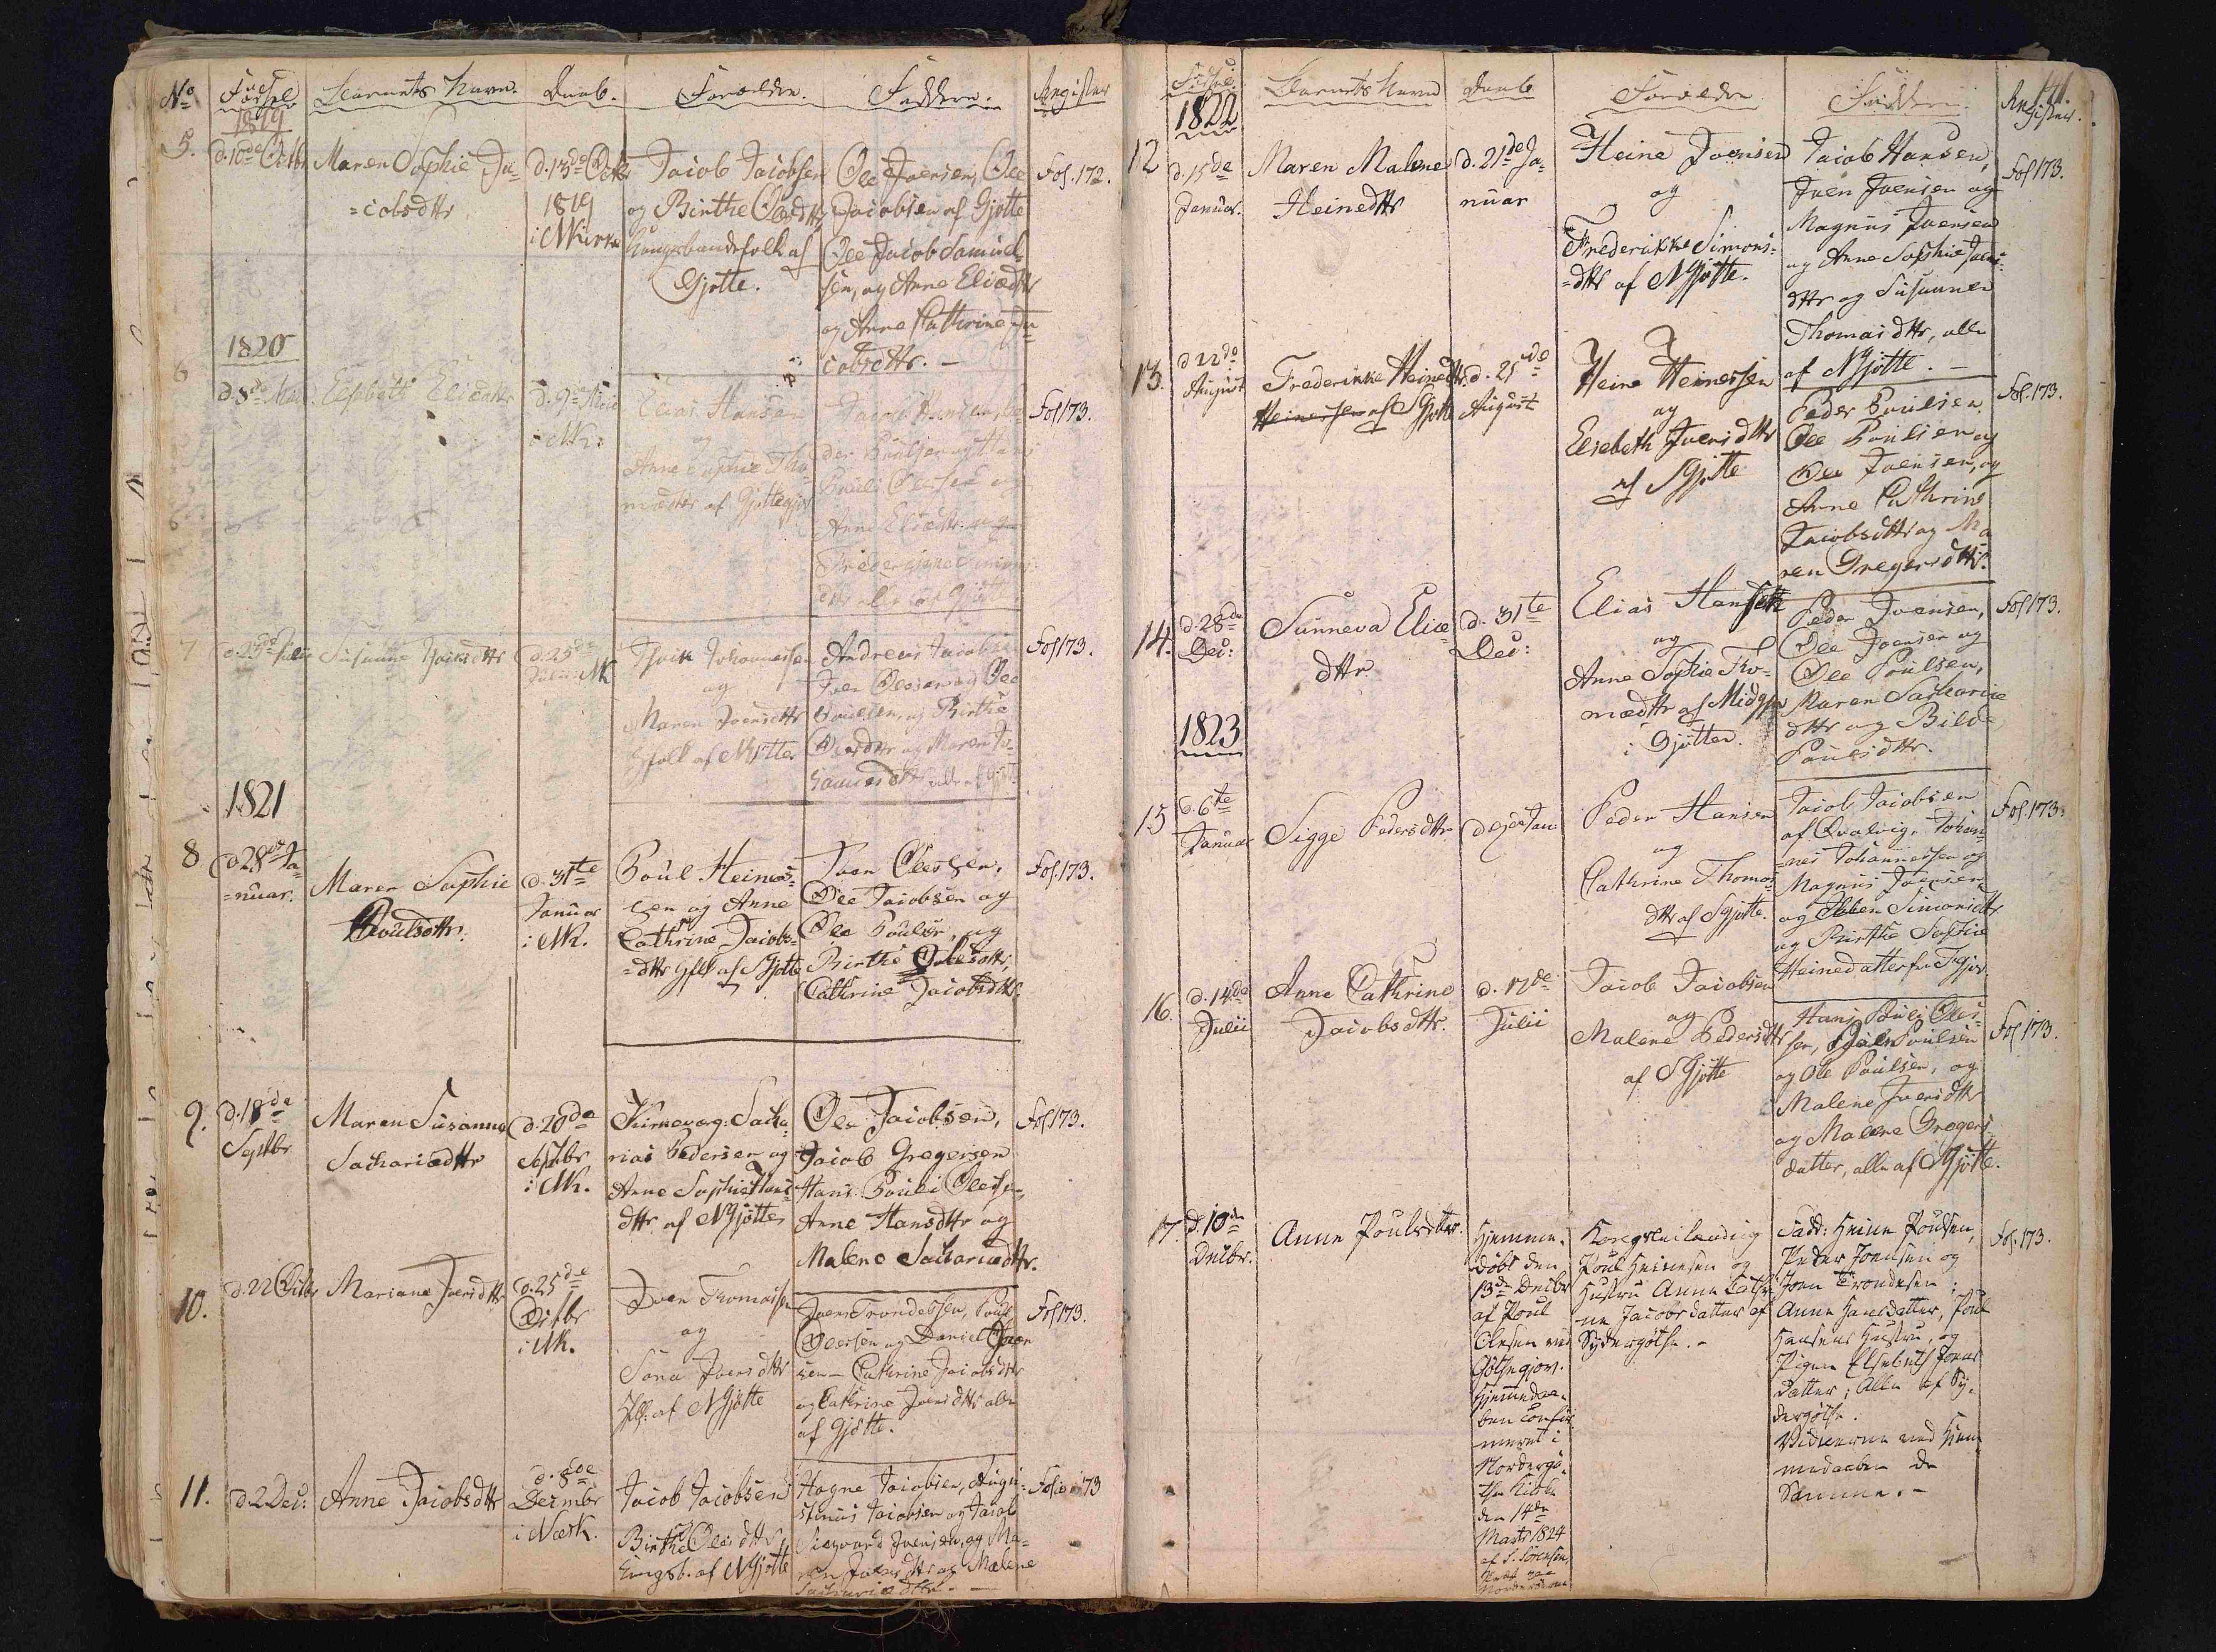 No Fødsel Barnets Navn. Daab. Forældre. Faddere. Register
1819
5. d. 10de Octbr Maren Sophie Ja=
=cobsdttr
d. 13de Octbr
1819
i NKirke
Jacob Jacobsen
og Birthe Olesdttr
Huusbandsfolk af
Gjøtte.
Ole Joensen, Ole
Jacobsen af Gjøtte
Ole Jacob Samuel=
sen, og Anne Eliædttr
og Anne Cathrine Ja=
cobsdttr. —
Fol. 172.
1820
6
d. 8de
Elsebeth Eliædttr
d. 9de
i NK.
Elias Hansen
og
Anne Sophie Tho=
mædttr af Gjøttegjov
Jacob Hansen, Pe=
der Poulsen og Hans
Pouli Olessen og
Anne Eliædttr og
Friderikke Simons=
dttr alle af Gjøtte
Fol 173.
7
d. 23de Julii
Susanne Isaksdttr
d. 25de
Julii i NK
Isak Johannessen
og
Maren Joensdttr
Hfolk af NGjøtte
Andreas Jacobsen
Joen Olessen og Ole
Poulsen, og Birthe
Olesdttr og Maren Jo=
hannesdttr alle af Gjøtt.
Fol 173.
1821
8
d. 28de Ja=
=nuar.
Maren Sophie
Poulsdttr.
d. 31te
Januar
i NK.
Poul Heines=
sen og Anne
Cathrine Jacobs=
=dttr Hflk af SGjøtte
Joen Olessen,
Ole Jacobsen og
Ole Poulsen, og
Birthe Olesdttr,
Cathrine Jacobsdttr
Fol. 173.
9.
d. 18de
Septbr
Maren Susanne
Sachariædttr
d. 20de
Septbr
i NK.
Kirkeverg: Sacha=
rias Pedersen og
Anne Sophie Hans=
dttr af NGjøtte
Ole Jacobsen,
Jacob Gregersen
Hans Pouli Olessen,
Anne Hansdttr og
Malene Sachariædttr.
Fol 173.
10.
d. 22 Octbr
Mariane Joensdttr
d. 25de
Octbr
i NK.
Joen Thomassen
og
Sona Joensdttr
Hflk: af NGjøtte
Joen Trondessen, Poul
Olessen og Daniel Joen
sen — Cathrine Jacobsdttr
og Cathrine Joensdttr alle
af Gjøtte.
Fol 173.
11.
d. 2 Dec:
Anne Jacobsdttr
d. 8de
Decembr
i NærK.
Jacob Jacobsen
Birthe Olesdttr
Huusb. af NGjøtte
Hogne Jacobsen, Augu=
stinus Jacobsen og Jacob
Siegvard Joensen, og Ma=
ren Joensdttr og Malene
Sachariædttr. —
Folio 173
141.
Fødsel Barnets Navn Daab Forældre Faddere Register.
1822
12
d. 15de
Januar.
Maren Malene
Heinedttr
d. 21de Ja=
nuar
Heine Joensen
og
Frederikke Simons=
=dttr af NGjøtte.
Jacob Hansen,
Joen Joensen og
Magnus Joensen
og Anne Sophie Joens=
dttr og Susanne
Thomasdttr, alle
af NGjøtte. —
Fol 173.
13.
d 22de
August
Frederikke Heinedttr.
Heinessen af SGjøtte
d. 25de
August
Heine Heinessen
og
Elsebeth Joensdttr
af SGjøtte
Peder Poulsen
Ole Poulsen og
Ole Joensen, og
Anne Cathrine
Jacobsdttr og Ma
ren Gregersdttr.
Fol. 173.
14.
d. 28de
Dec:
Sunneva Eliæ=
dttr
d. 31te
Dec:
Elias Hansen
og
Anne Sophie Tho=
mædttr af Midgjov
i Gjøtte.
Peder Joensen,
Ole Joensen og
Ole Poulsen,
Maren Sachariæ
dttr og Bild=
Poulsdttr.
Fol 173.
1823
15
d. 6te
Januar
Sigge Pedersdttr
d 9de Jan
Peder Hansen
og
Cathrine Thomas=
dttr af SGjøtte.
Jacob Jacobsen
af Qvalvig, Johan=
=nes Johannessen og
Magnus Joensen
og Ellen Simonsdttr
og Birthe Sophie
Heinedatter fra Tgjov
Fol. 173.
16.
d. 14de
Julii
Anne Cathrine
Jacobsdttr.
d. 17de
Julii
Jacob Jacobsen
og
Malene Pedersdttr
af SGjøtte
Hans Pouli Oles=
sen, Poulsen
og Ole Poulsen, og
Malene Joensdttr
og Malene Gregers=
datter, alle af NGjøtte.
Fol 173.
17.
d. 10de
Decbr.
Anne Poulsdatter.
Hjemme=
døbt den
13de Decbr
af Poul
Olesen ved
Gøthegjov.
Hjemmedaa=
ben confir
meret i
Nordregø=
the Kirke
den 14de
Marts 1824
af S. Sørensen,
Poul Heinesen og
Hustru Anne Cathri
ne Jacobsdatter af
Sydregøthe. —
Fadd: Heine Poulsen,
Peder Joensen og
Joen Trondesen;
Anne Hansdatter, Poul
Hansens Hustru, og
Pigen Elsebeth Joens
datter; Alle af Sy=
dregøthe.
Vidnerne ved Hjem
medaaben de
Samme. —
Fol. 173.